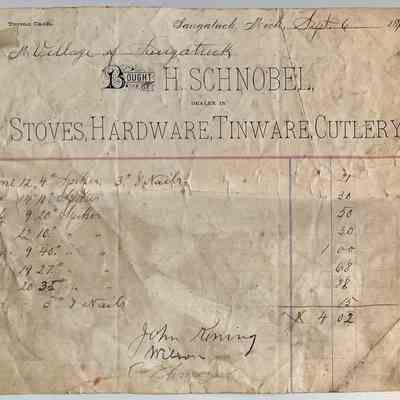 Terms Cash.
Saugatuck, Mich., Sept. 6 18
M Village of Saugatuck
Bought of H. SCHNOBEL,
DEALER IN
STOVES, HARDWARE, TINWARE, CUTLERY
12 4" Spikes 3" & Nails
30
9 20" Spikes 50
12 10" " " 30
9 40" " " 1 00
19 27" " " 68
20 35 " " 88
5" & Nails 15
4 02
John Koning
Wilson